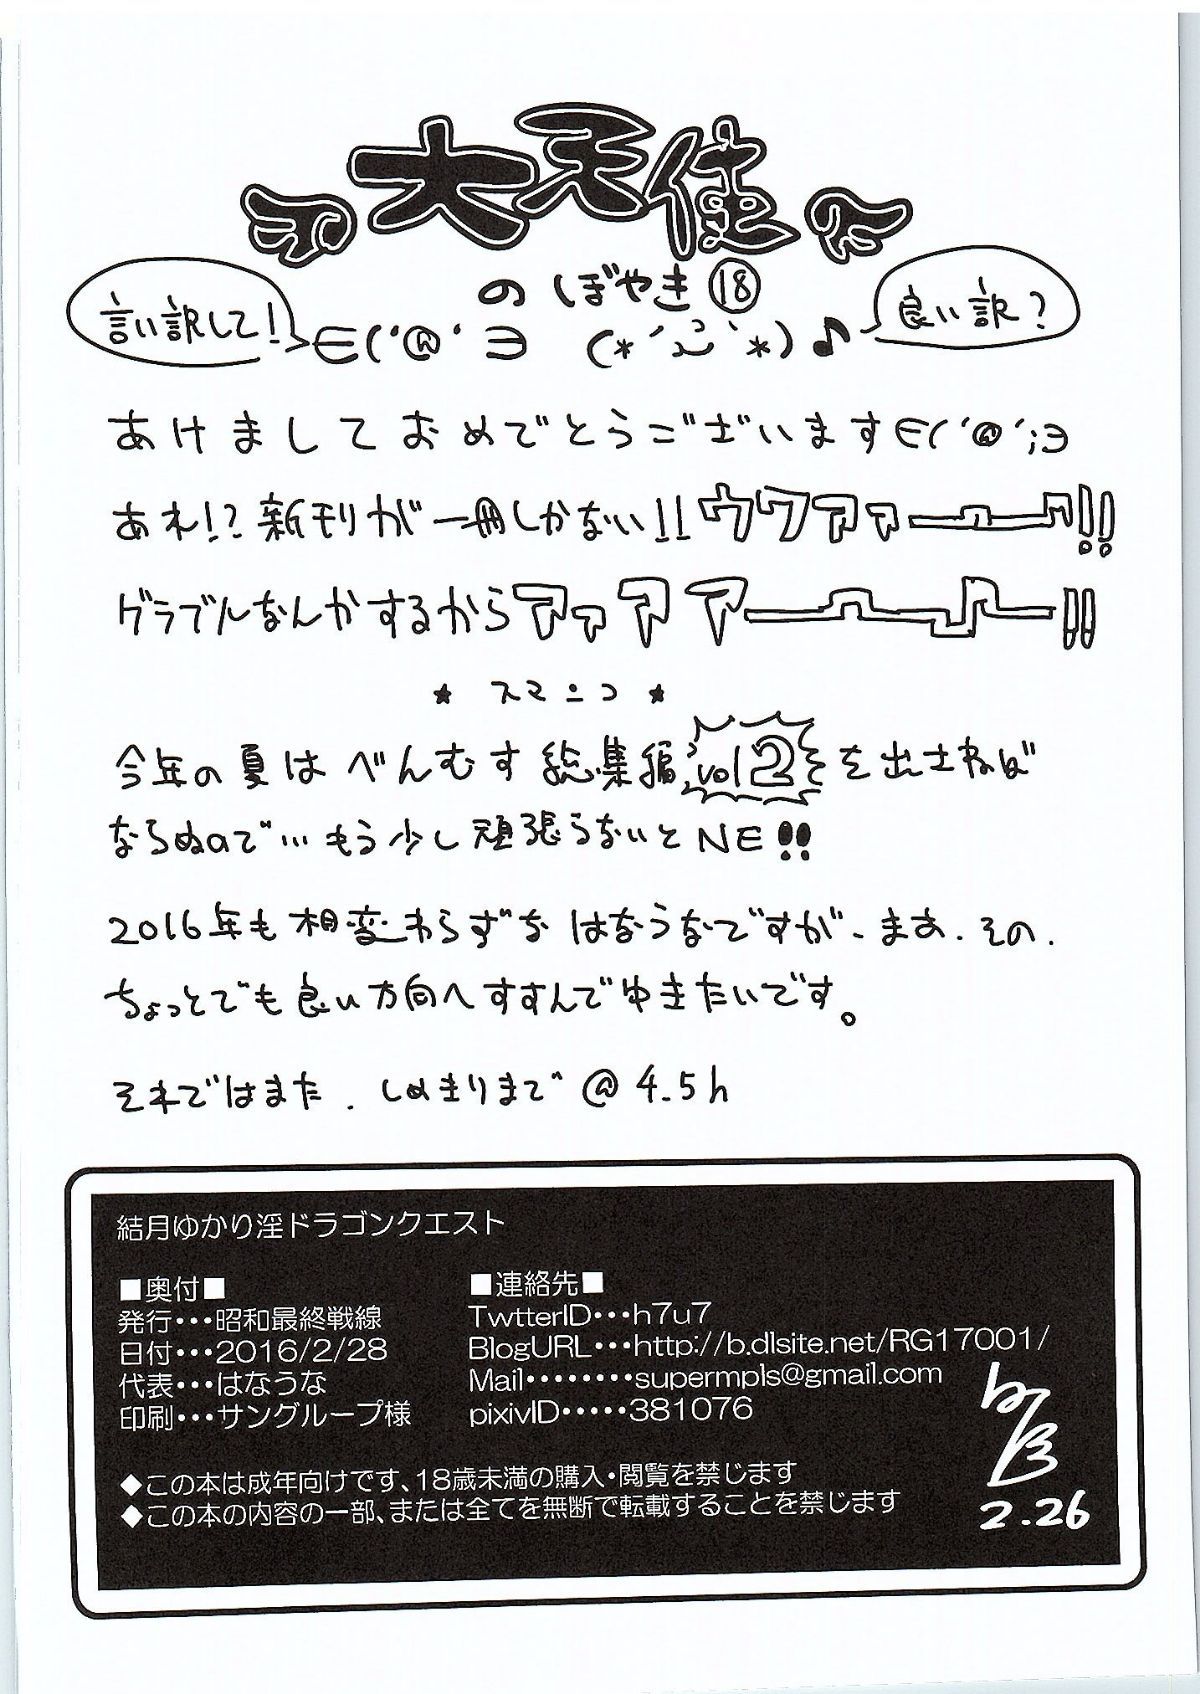 大天使
のぼやき⑱
言い訳して!
∈('@'∋ (*´ω`*)♪
良い訳?
あけましておめでとうございます∈('@';∋
あれ!?新刊が一冊しかない!!ウワァァーーー!!
グラブルなんかするからアァアアーーー!!
★ スマンコ ★
今年の夏はべんむす総集編vol2を出さねば
ならぬので…もう少し頑張らないとNE!!
2016年も相変わらずなはなうなですが、まあ、その、
ちょっとでも良い方向へすすんでゆきたいです。
それではまた、しめきりまで@4.5h
結月ゆかり淫ドラゴンクエスト
■奥付■
発行・・・昭和最終戦線
日付・・・2016/2/28
代表・・・はなうな
印刷・・・サングループ様
■連絡先■
TwtterID・・・h7u7
BlogURL・・・http://b.dlsite.net/RG17001/
Mail・・・・・・・・supermpls@gmail.com
pixivID・・・・・381076
◆この本は成年向けです、18歳未満の購入・閲覧を禁じます
◆この本の内容の一部、または全てを無断で転載することを禁じます
2.26